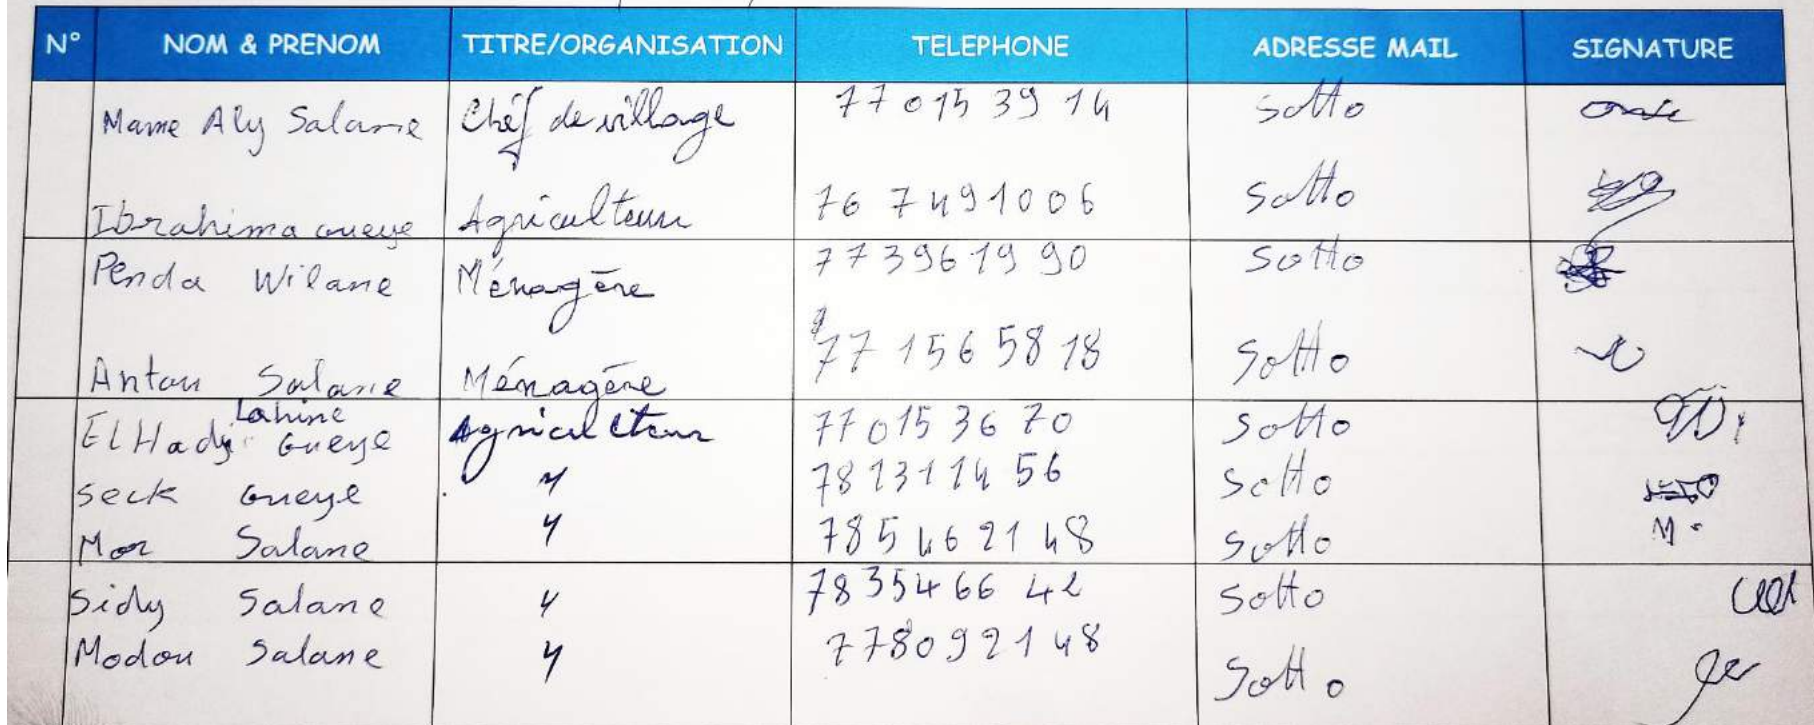 N° NOM & PRENOM TITRE/ORGANISATION TELEPHONE ADRESSE MAIL SIGNATURE
Mame Aly Salane Chéf de village 77 015 39 14 Sotto
Ibrahima Gueye Agriculteur 76 7491006 Sotto
Penda Wilane Ménagère 77 396 19 90 Sotto
Antou Salane Ménagère 77 156 58 18 Sotto
El Hady Lahine Gueye Agriculteur 77 015 36 70 Sotto
Seck Gueye " 78 131 14 56 Sotto
Mor Salane " 78 546 21 48 Sotto
Sidy Salane " 78 354 66 42 Sotto
Modou Salane " 77 809 21 48 Sotto